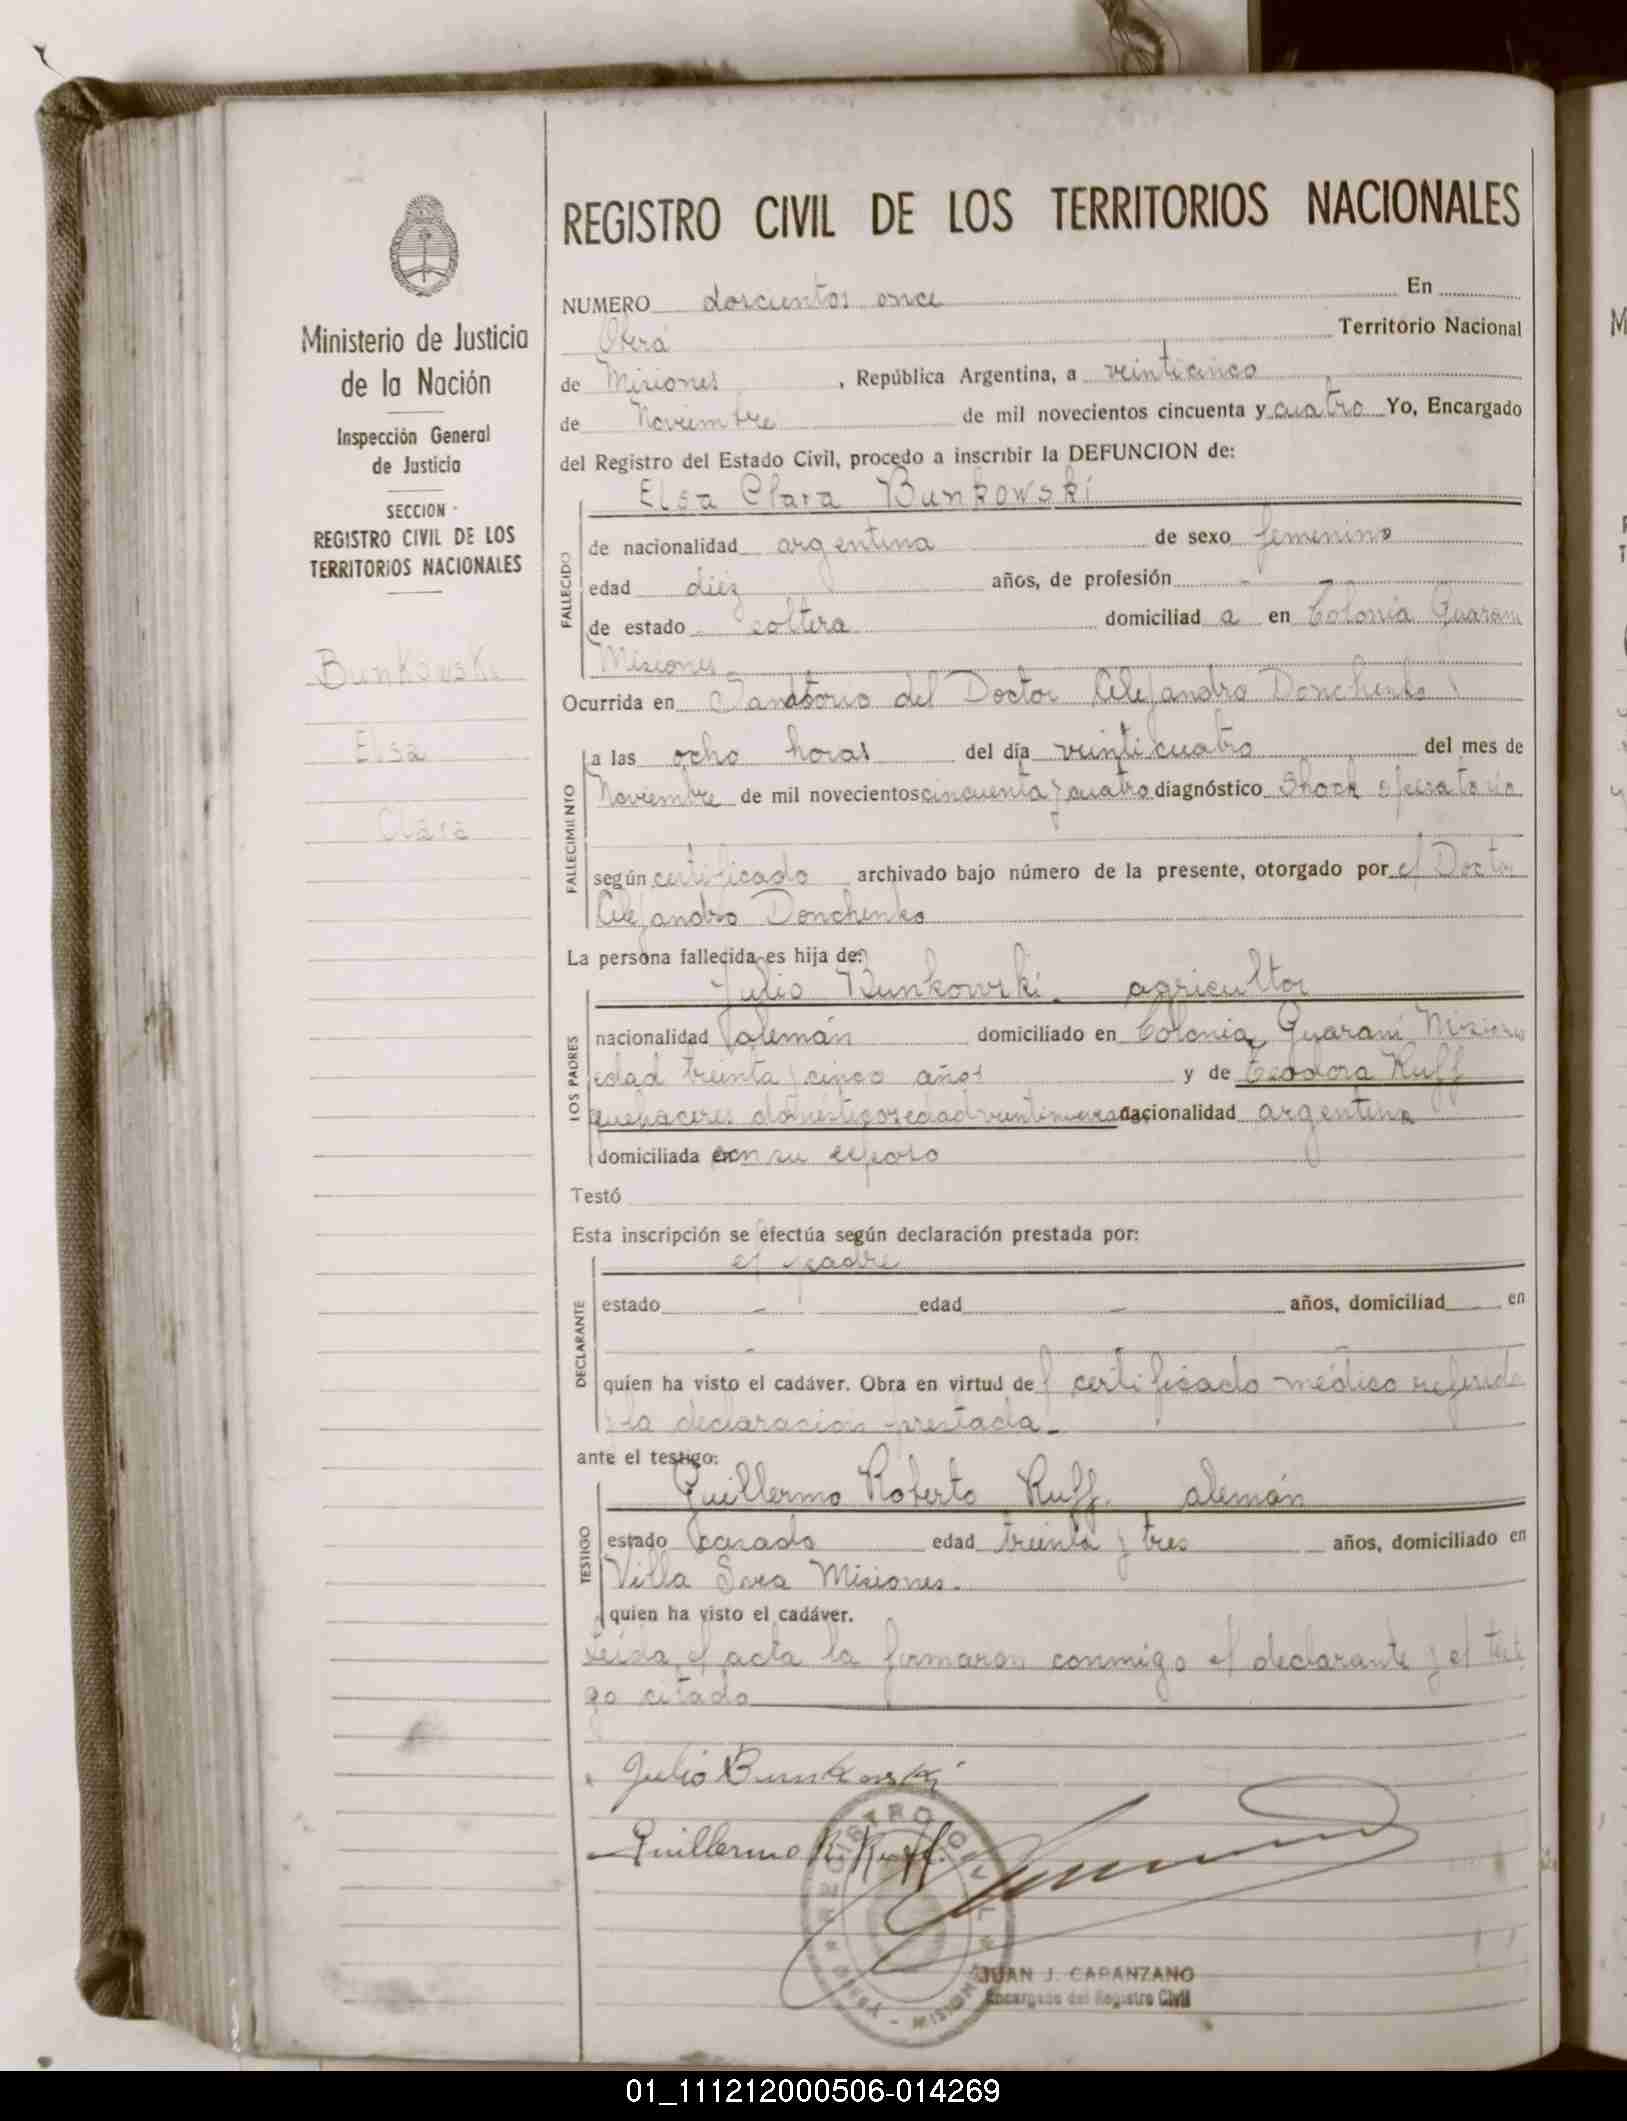 REGISTRO CIVIL DE LOS TERRITORIOS NACIONALES
Ministerio de Justicia
de la Nación
Inspección General
de Justicia
SECCION
REGISTRO CIVIL DE LOS
TERRITORIOS NACIONALES
Bunkowski
Elsa
Clara
NUMERO doscientos once En
Oberá Territorio Nacional
de Misiones, República Argentina, a veinticinco
de Noviembre de mil novecientos cincuenta y cuatro Yo, Encargado
del Registro del Estado Civil, procedo a inscribir la DEFUNCION de:
Elsa Clara Bunkowski
FALLECIDO
de nacionalidad argentina de sexo femenino
edad diez años, de profesión -
de estado soltera domiciliad a en Colonia Guaraní
Misiones
Ocurrida en Sanatorio del Doctor Alejandro Donchenko
FALLECIMIENTO
a las ocho horas del día veinticuatro del mes de
Noviembre de mil novecientos cincuenta y cuatro diagnóstico Shock operatorio
según certificado archivado bajo número de la presente, otorgado por el Doctor
Alejandro Donchenko
La persona fallecida es hija de:
LOS PADRES
Julio Bunkowski. agricultor
nacionalidad alemán domiciliado en Colonia Guaraní Misiones
edad treinta y cinco años y de Teodora Ruff
quehaceres domésticos edad veintinueve nacionalidad argentina
domiciliada con su esposo
Testó
Esta inscripción se efectúa según declaración prestada por:
DECLARANTE
el padre
estado - edad - años, domiciliad en
-
quien ha visto el cadáver. Obra en virtud del certificado médico referido
y la declaración prestada.-
ante el testigo:
TESTIGO
Guillermo Roberto Ruff. alemán
estado casado edad treinta y tres años, domiciliado en
Villa Sara Misiones.
quien ha visto el cadáver.
Leída el acta la firmaron conmigo el declarante y el testi
go citado
Julio Bunkowski
Guillermo R. Ruff.
REGISTRO CIVIL
OBERA - MISIONES
JUAN J. CAPANZANO
Encargado del Registro Civil
01_111212000506-014269